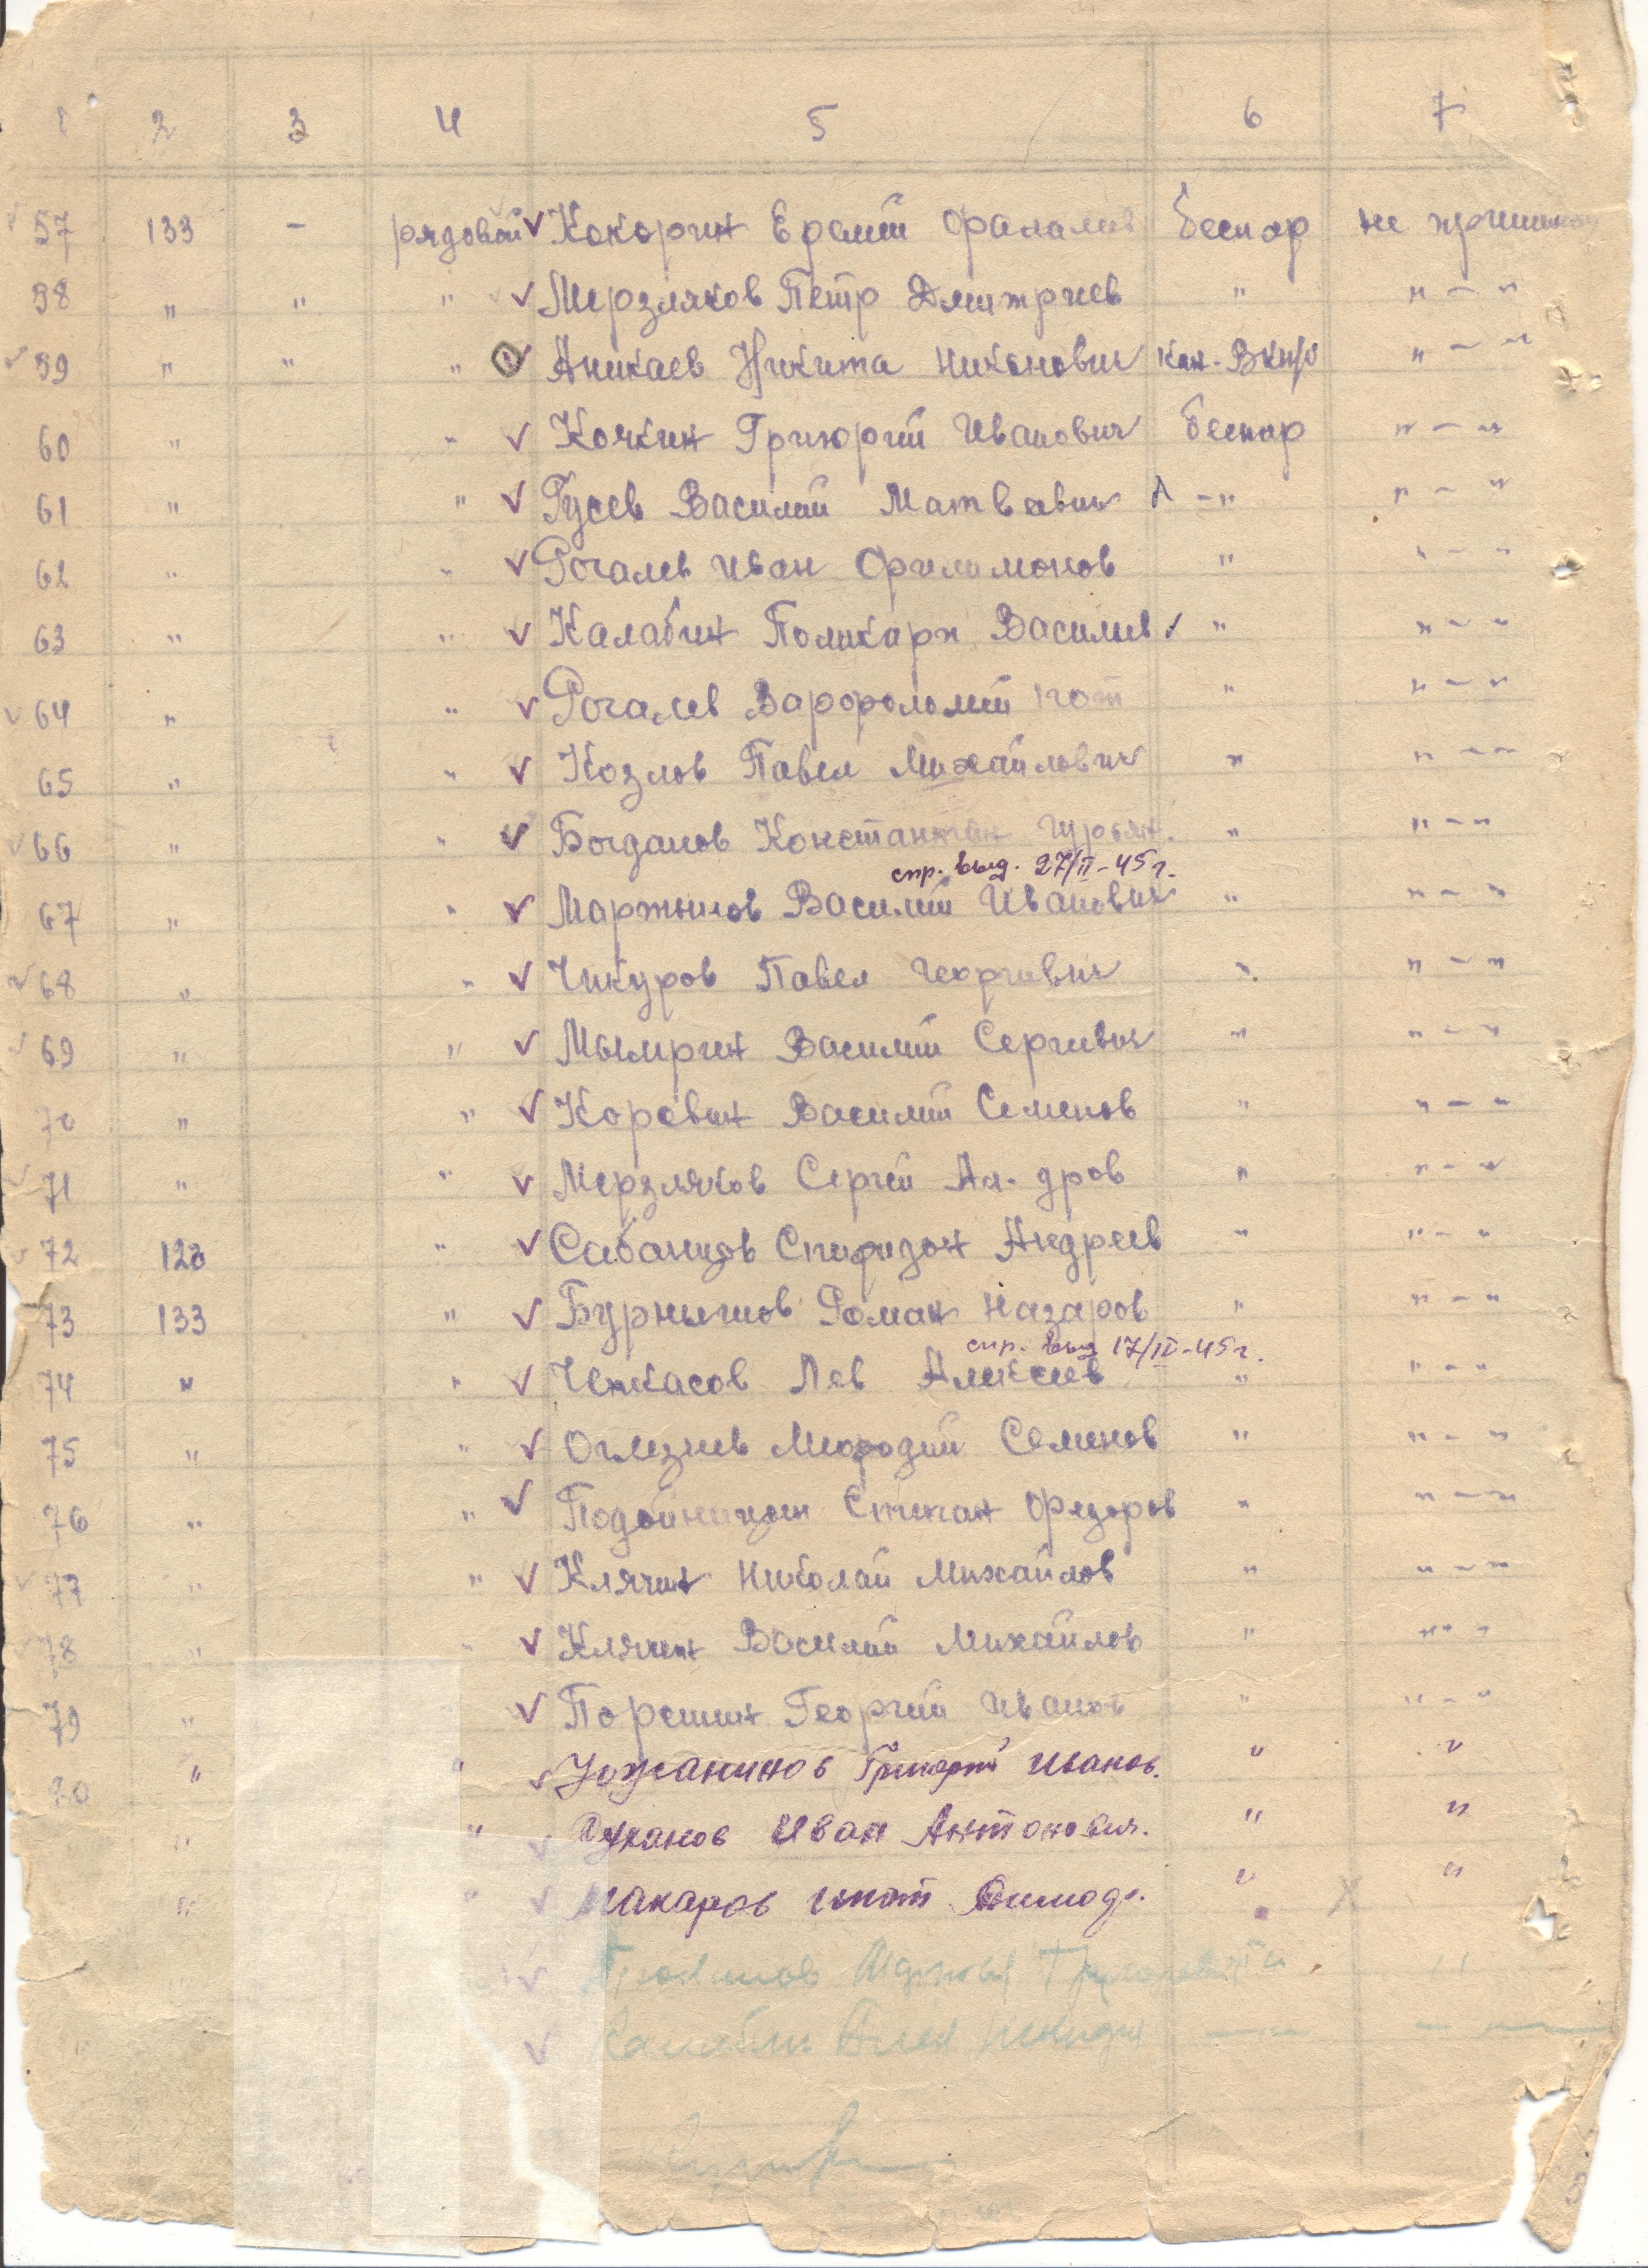 1 2 3 4 5 6 7
57 133 - рядовой Кокорин Ерелий Фалалив беспар не
58 " " " Мерзляков Петр Дмитриев " " - "
59 " " " Аникаев Никита Никонович кан. ВКП/б " - "
60 " " Кочкин Григорий Иванович беспар " - "
61 " " Гусев Василий Матвевич - " " - "
62 " " Рогалев Иван Филимонов " " - "
63 " " Калабин Поликарп Василиев " " - "
64 " " Рогалев Варфоломий " " - "
65 " " Козлов Павел Михайлович " " - "
66 " " Богданов Константин Гурьян. " " - "
спр. выд. 27/II-45 г.
67 " " Мартынов Василий Иванович " " - "
68 " " Чикуров Павел Георгивич " " - "
69 " " Мымрин Василий Сергивич " " - "
70 " " Коревин Василий Семенов " " - "
71 " " Мерзляков Сергей Ал-дров " " - "
72 123 " Сабанцов Спиридон Андреев " " - "
73 133 " Бурнышов Роман Назаров " " - "
спр. выд 17/III-45 г.
74 " " Черкасов Лев Алексеев " " - "
75 " " Оглезнев Мефодий Семенов " " - "
76 " " Подойницин Степан Федоров " " - "
77 " " Клячин Николай Михайлов " " - "
78 " " Клячин Василий Михайлов " " - "
79 " Поршин Георгий Иванов " " - "
80 " " Ужанинов Григорий Иванов. " "
" " Цуканов Иван Антонович. " "
" " Макаров Игнат " "